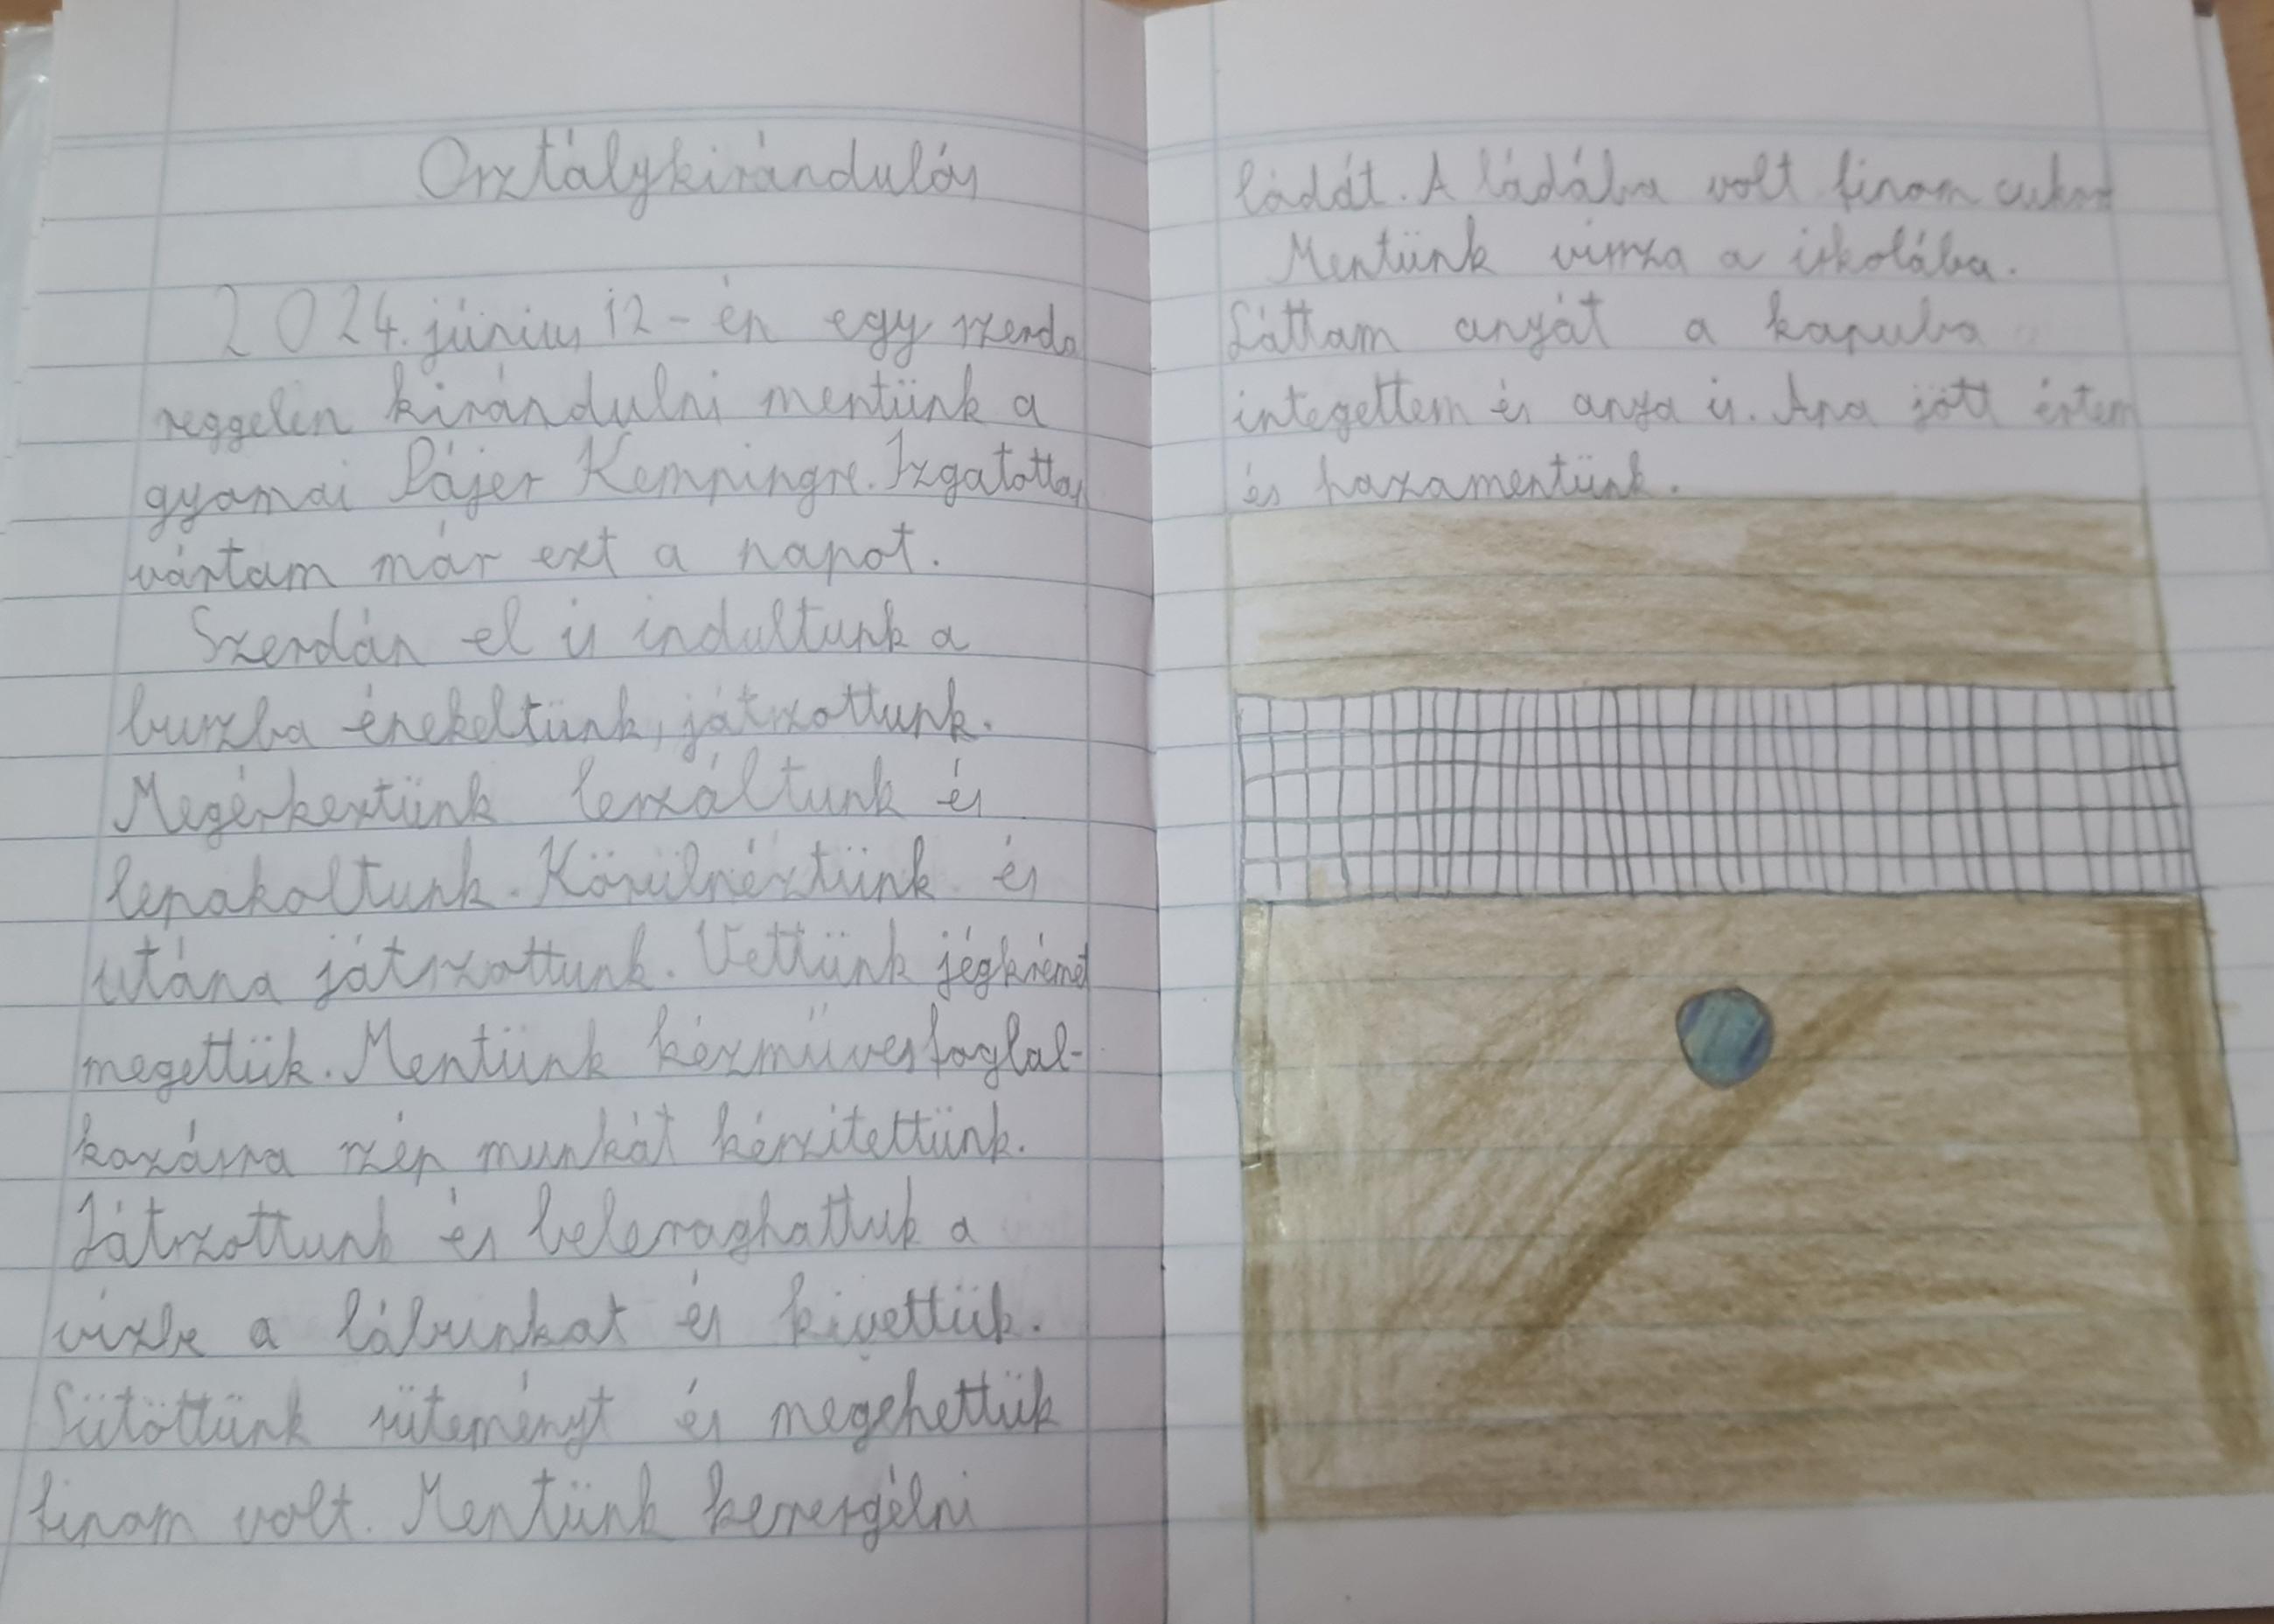 Osztálykirándulás
2024. június 12-én egy szerda
reggelen kirándulni mentünk a
gyomai Pájer Kempingre. Izgatottan
vártam már ezt a napot.
Szerdán el is indultunk a
buszba énekeltünk, játszottunk.
Megérkeztünk leszáltunk és
lepakoltunk. Körülnéztünk és
utána játszottunk. Vettünk jégkrémet
megettük. Mentünk kézművesfoglal-
kozásra szép munkát készitettünk.
Játszottunk és beleraghattuk a
vízbe a lábunkat és kivettük.
Sütöttünk süteményt és megehettük
finom volt. Mentünk keresgélni
ládát. A ládába volt finom cukor
Mentünk vissza a iskolába.
Láttam anyát a kapuba
integettem és anya is. Ana jött értem
és hazamentünk.